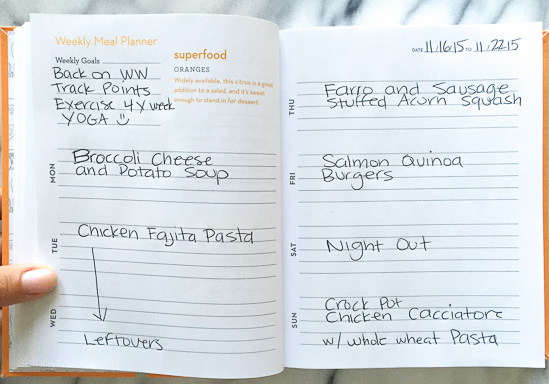 Weekly Meal Planner
Weekly Goals
Back on WW
Track Points
Exercise 4x week
YOGA
superfood
ORANGES
Widely available, this citrus is a great
addition to a salad, and it's sweet
enough to stand in for dessert.
MON
Broccoli Cheese
and Potato Soup
TUE
Chicken Fajita Pasta
WED
Leftovers
DATE 11/16/15 TO 11/22/15
THU
Farro and Sausage
Stuffed Acorn Squash
FRI
Salmon Quinoa
Burgers
SAT
Night Out
SUN
Crock Pot
Chicken Cacciatore
w/ whole wheat Pasta